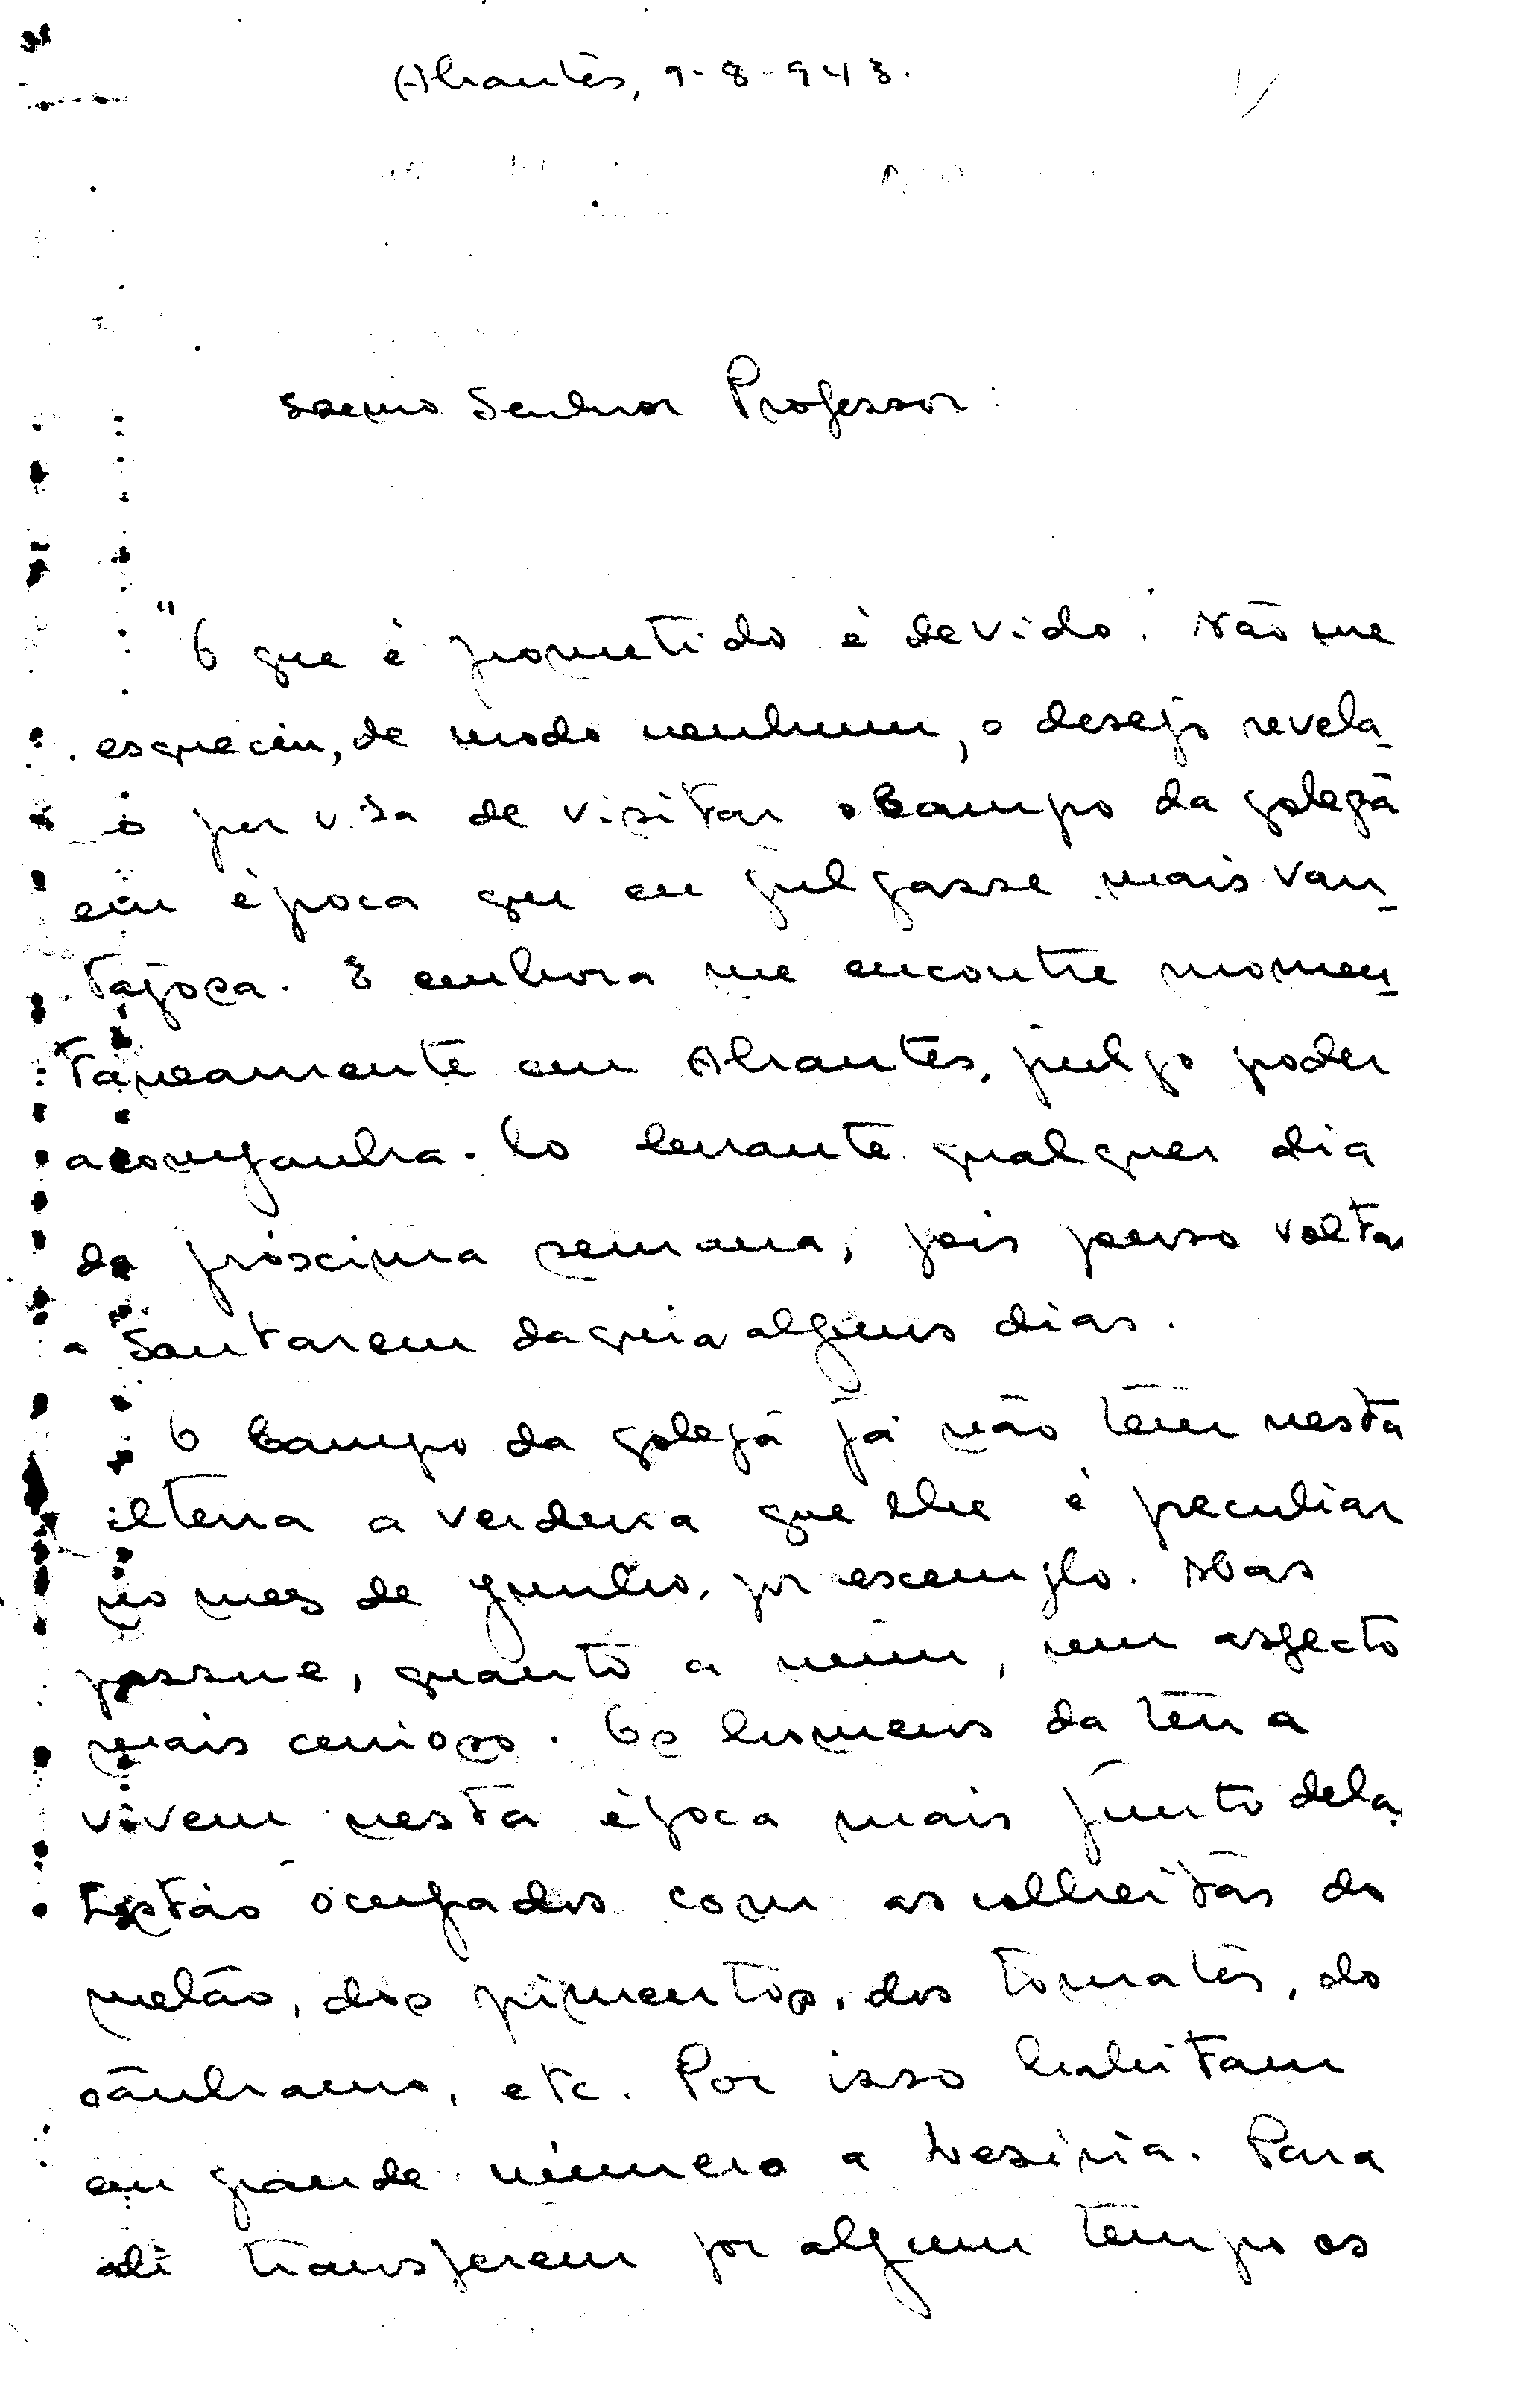 Abrantes, 9-8-943.
Exemo Senhor Professor:
"O que é prometido é devido. Não me
esqueceu, de modo nenhum, o desejo revela-
o por V. Sa de visitar o Campo da golegã
em época que eu julgasse mais van-
tajosa. E embora me encontre momen-
taneamente em Abrantes, julgo poder
acompanha-lo durante qualquer dia
da próscima semana, pois penso voltar
a Santarem daqui a alguns dias.
O Campo da golegã já não têm nesta
altura a verdura que lhe é peculiar
no mes de Junho, por escemplo. Mas
possue, quanto a mim, um aspecto
mais curioso. Os homens da terra
vivem nesta época mais junto dela.
Estão ocupados com as colheitas do
melão, dos pimentos, dos tomates, do
cânhamo, etc. Por isso habitam
em grande número a Lesíria. Para
ali transferem por algum tempo os